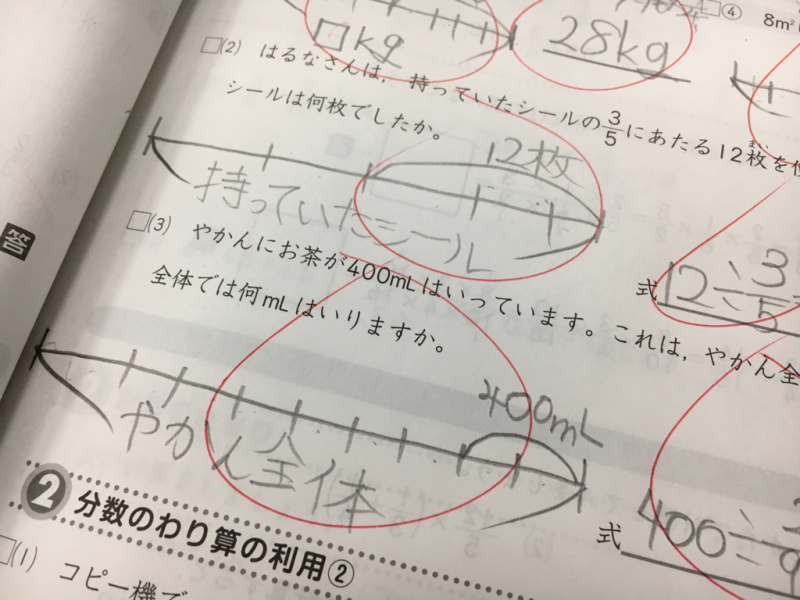 ④ 8m²
□kg
28kg
□(2) はるなさんは，持っていたシールの3/5にあたる12枚を
シールは何枚でしたか。
12枚
持っていたシール
式 12÷3/5
□(3) やかんにお茶が400mLはいっています。これは，やかん全
全体では何mLはいりますか。
400mL
やかん全体
式 400÷
答
2 分数のわり算の利用②
□(1) コピー機で